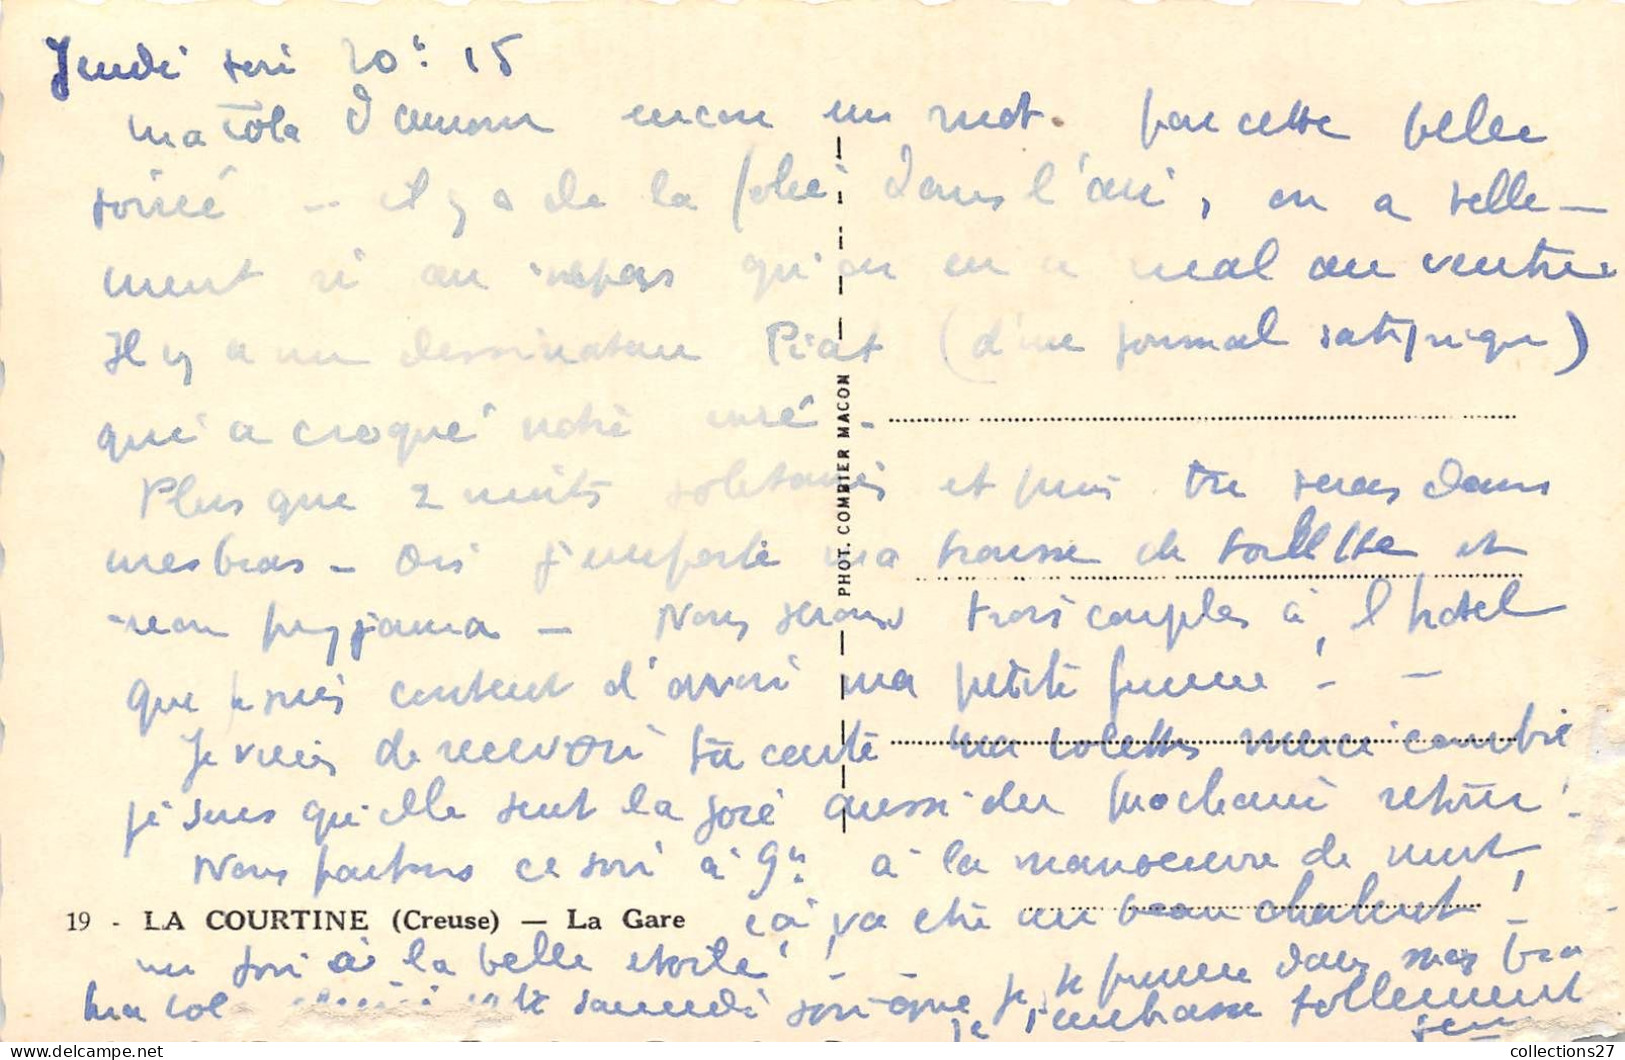 Jeudi soir 20h 15
ma Cola d'amour encore un mot. par cette belle
soirée -- il y a de la folie dans l'air, on a telle-
ment ri au repas qu'on en a mal au ventre.
Il y a un dessinateur Piat (d'une journal satirique)
qui a croqué notre curé -
Plus que 2 nuits solitaires et puis tu seras dans
mes bras - Oui j'emporte ma trousse de toilette et
mon pyjama - Nous serons trois couples à l'hotel
que je suis content d'avoir ma petite femme ! -
Je viens de recevoir ta carte ma colette merci combie
je sens qu'elle sent la joie aussi du prochain retour !
Nous partons ce soir à 9h à la manoeuvre de nuit
19 - LA COURTINE (Creuse) — La Gare
ça va etre un beau chahut !
un soir à la belle etoile ! -
ma col samedi soir que je te prenne dans mes bra
je t'embrasse follement
PHOT. COMBIER MACON
collections27